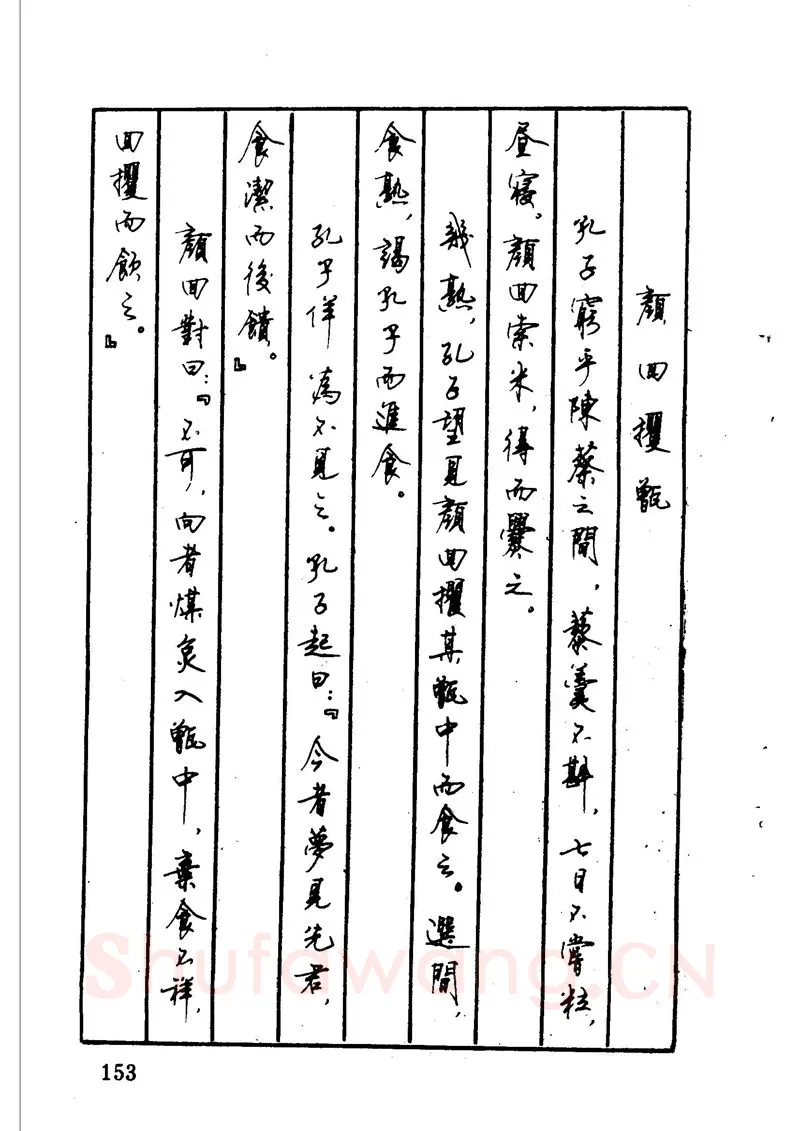 顏回攫甑
孔子窮乎陳蔡之間，藜羹不斟，七日不嘗粒，
昼寝。顏回索米，得而爨之。
幾熟，孔子望見顏回攫其甑中而食之。選間，
食熟，謁孔子而進食。
孔子佯為不見之。孔子起曰：『今者夢見先君，
食潔而後饋。』
顏回對曰：『不可，向者煤炱入甑中，棄食不祥，
回攫而飲之。』
Shufawang.CN
153